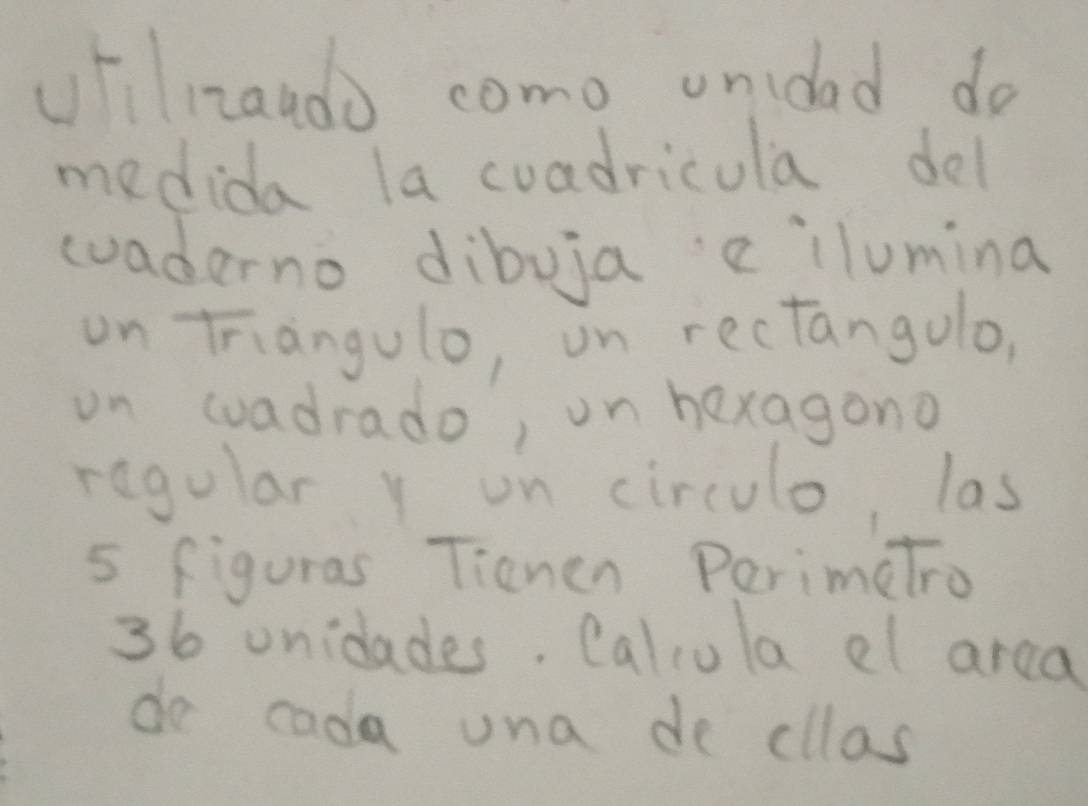 utilizando como unidad de
medida la cuadricula del
cuaderno dibuja e ilumina
un Triangulo, un recTangulo,
un cuadrado, un hexagono
regular y un circulo, las
5 figuras Tienen PerimeTro
36 unidades. Calcula el area
de cada una de ellas